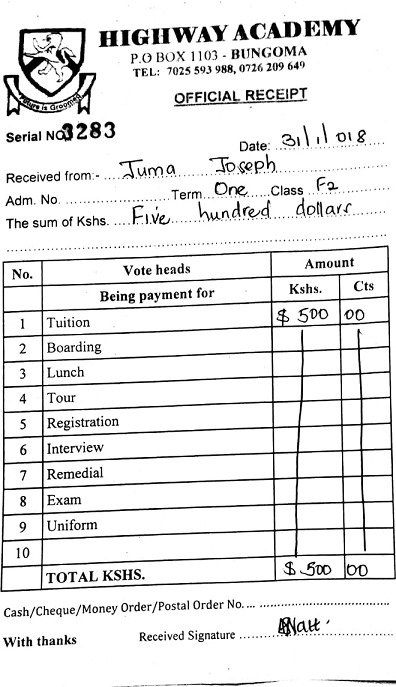 HIGHWAY ACADEMY
P.O BOX 1103 - BUNGOMA
TEL: 7025 593 988, 0726 209 649
Future is Groomed
OFFICIAL RECEIPT
Serial NO. 3283
Date: 31/1/018
Received from:- Juma Joseph
Adm. No. Term One Class F2
The sum of Kshs. Five hundred dollars
No. Vote heads Amount
Being payment for Kshs. Cts
1 Tuition $ 500 00
2 Boarding
3 Lunch
4 Tour
5 Registration
6 Interview
7 Remedial
8 Exam
9 Uniform
10
TOTAL KSHS. $ 500 00
Cash/Cheque/Money Order/Postal Order No.
With thanks Received Signature